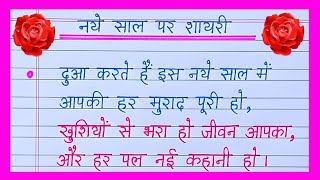 नये साल पर शायरी
दुआ करते हैं इस नये साल में
आपकी हर मुराद पूरी हो,
खुशियों से भरा हो जीवन आपका,
और हर पल नई कहानी हो।